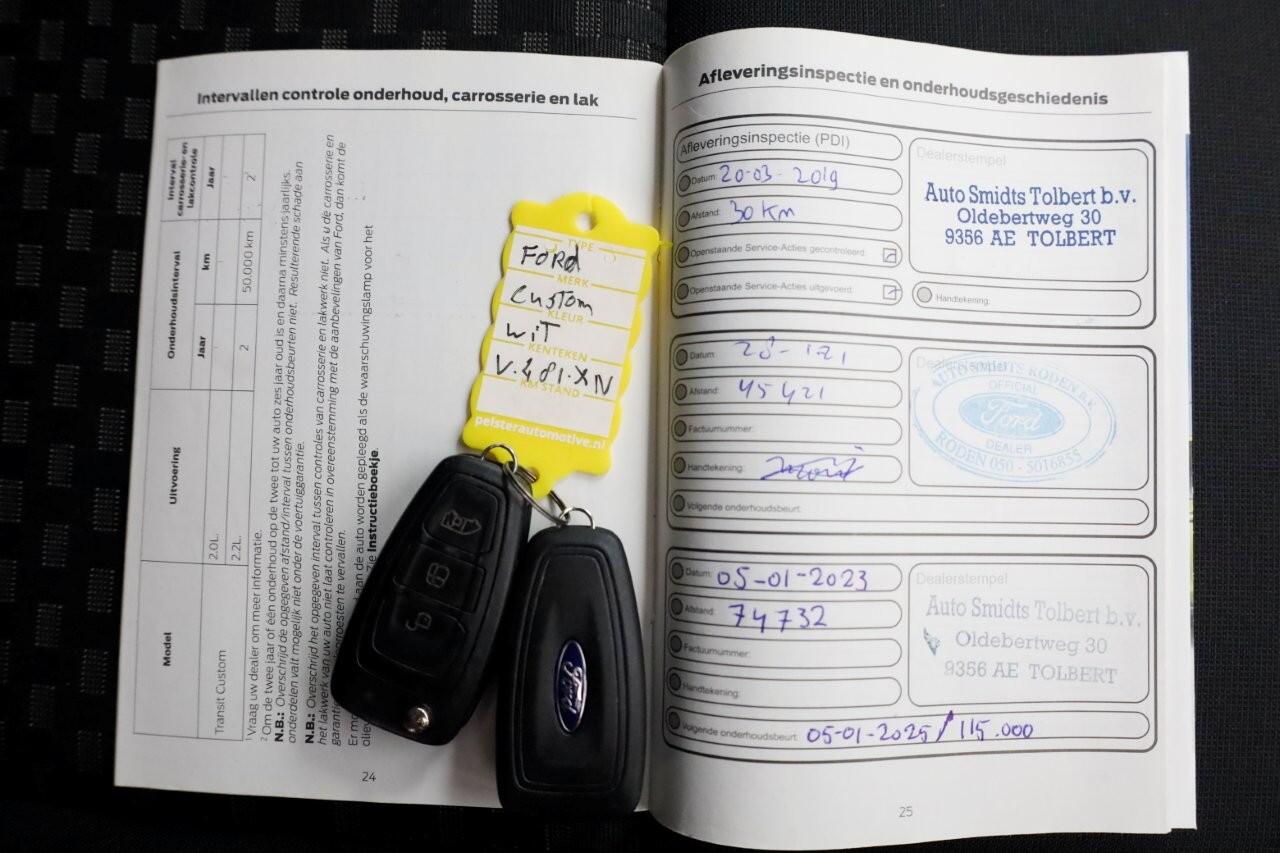 Intervallen controle onderhoud, carrosserie en lak
Model
Uitvoering
Onderhoudsinterval
Interval carrosserie- en lakcontrole
Jaar
km
Jaar
Transit Custom
2.0L.
2.2L.
2
50.000 km
2
1 Vraag uw dealer om meer informatie.
2 Om de twee jaar of één onderhoud op de twee tot uw auto zes jaar oud is en daarna minstens jaarlijks.
N.B.: Overschrijd de opgegeven afstand/interval tussen onderhoudsbeurten niet. Resulterende schade aan
onderdelen valt mogelijk niet onder de voertuiggarantie.
N.B.: Overschrijd het opgegeven interval tussen controles van carrosserie en lakwerk niet. Als u de carrosserie en
het lakwerk van uw auto niet laat controleren in overeenstemming met de aanbevelingen van Ford, dan komt de
garantie
roesten te vervallen.
Er
aan de auto worden gepleegd als de waarschuwingslamp voor het
olie
Zie Instructieboekje.
24
TYPE
FORD
MERK
Custom
KLEUR
WIT
KENTEKEN
KM STAND
pelsterautomotive.nl
Ford
Afleveringsinspectie en onderhoudsgeschiedenis
Afleveringsinspectie (PDI)
Datum: 20-03-2019
Afstand: 30 Km
Openstaande Service-Acties gecontroleerd:
Openstaande Service-Acties uitgevoerd:
Dealerstempel
Auto Smidts Tolbert b.v.
Oldebertweg 30
9356 AE TOLBERT
Handtekening:
Datum:
Afstand: 45421
Factuurnummer:
Handtekening:
Volgende onderhoudsbeurt:
AUTO SMIDTS RODEN B.V.
OFFICIAL
Ford
DEALER
RODEN 050 - 5016855
Datum: 05-01-2023
Afstand: 74732
Factuurnummer:
Handtekening:
Dealerstempel
Auto Smidts Tolbert b.v.
Oldebertweg 30
9356 AE TOLBERT
Volgende onderhoudsbeurt: 05-01-2025 / 115.000
25